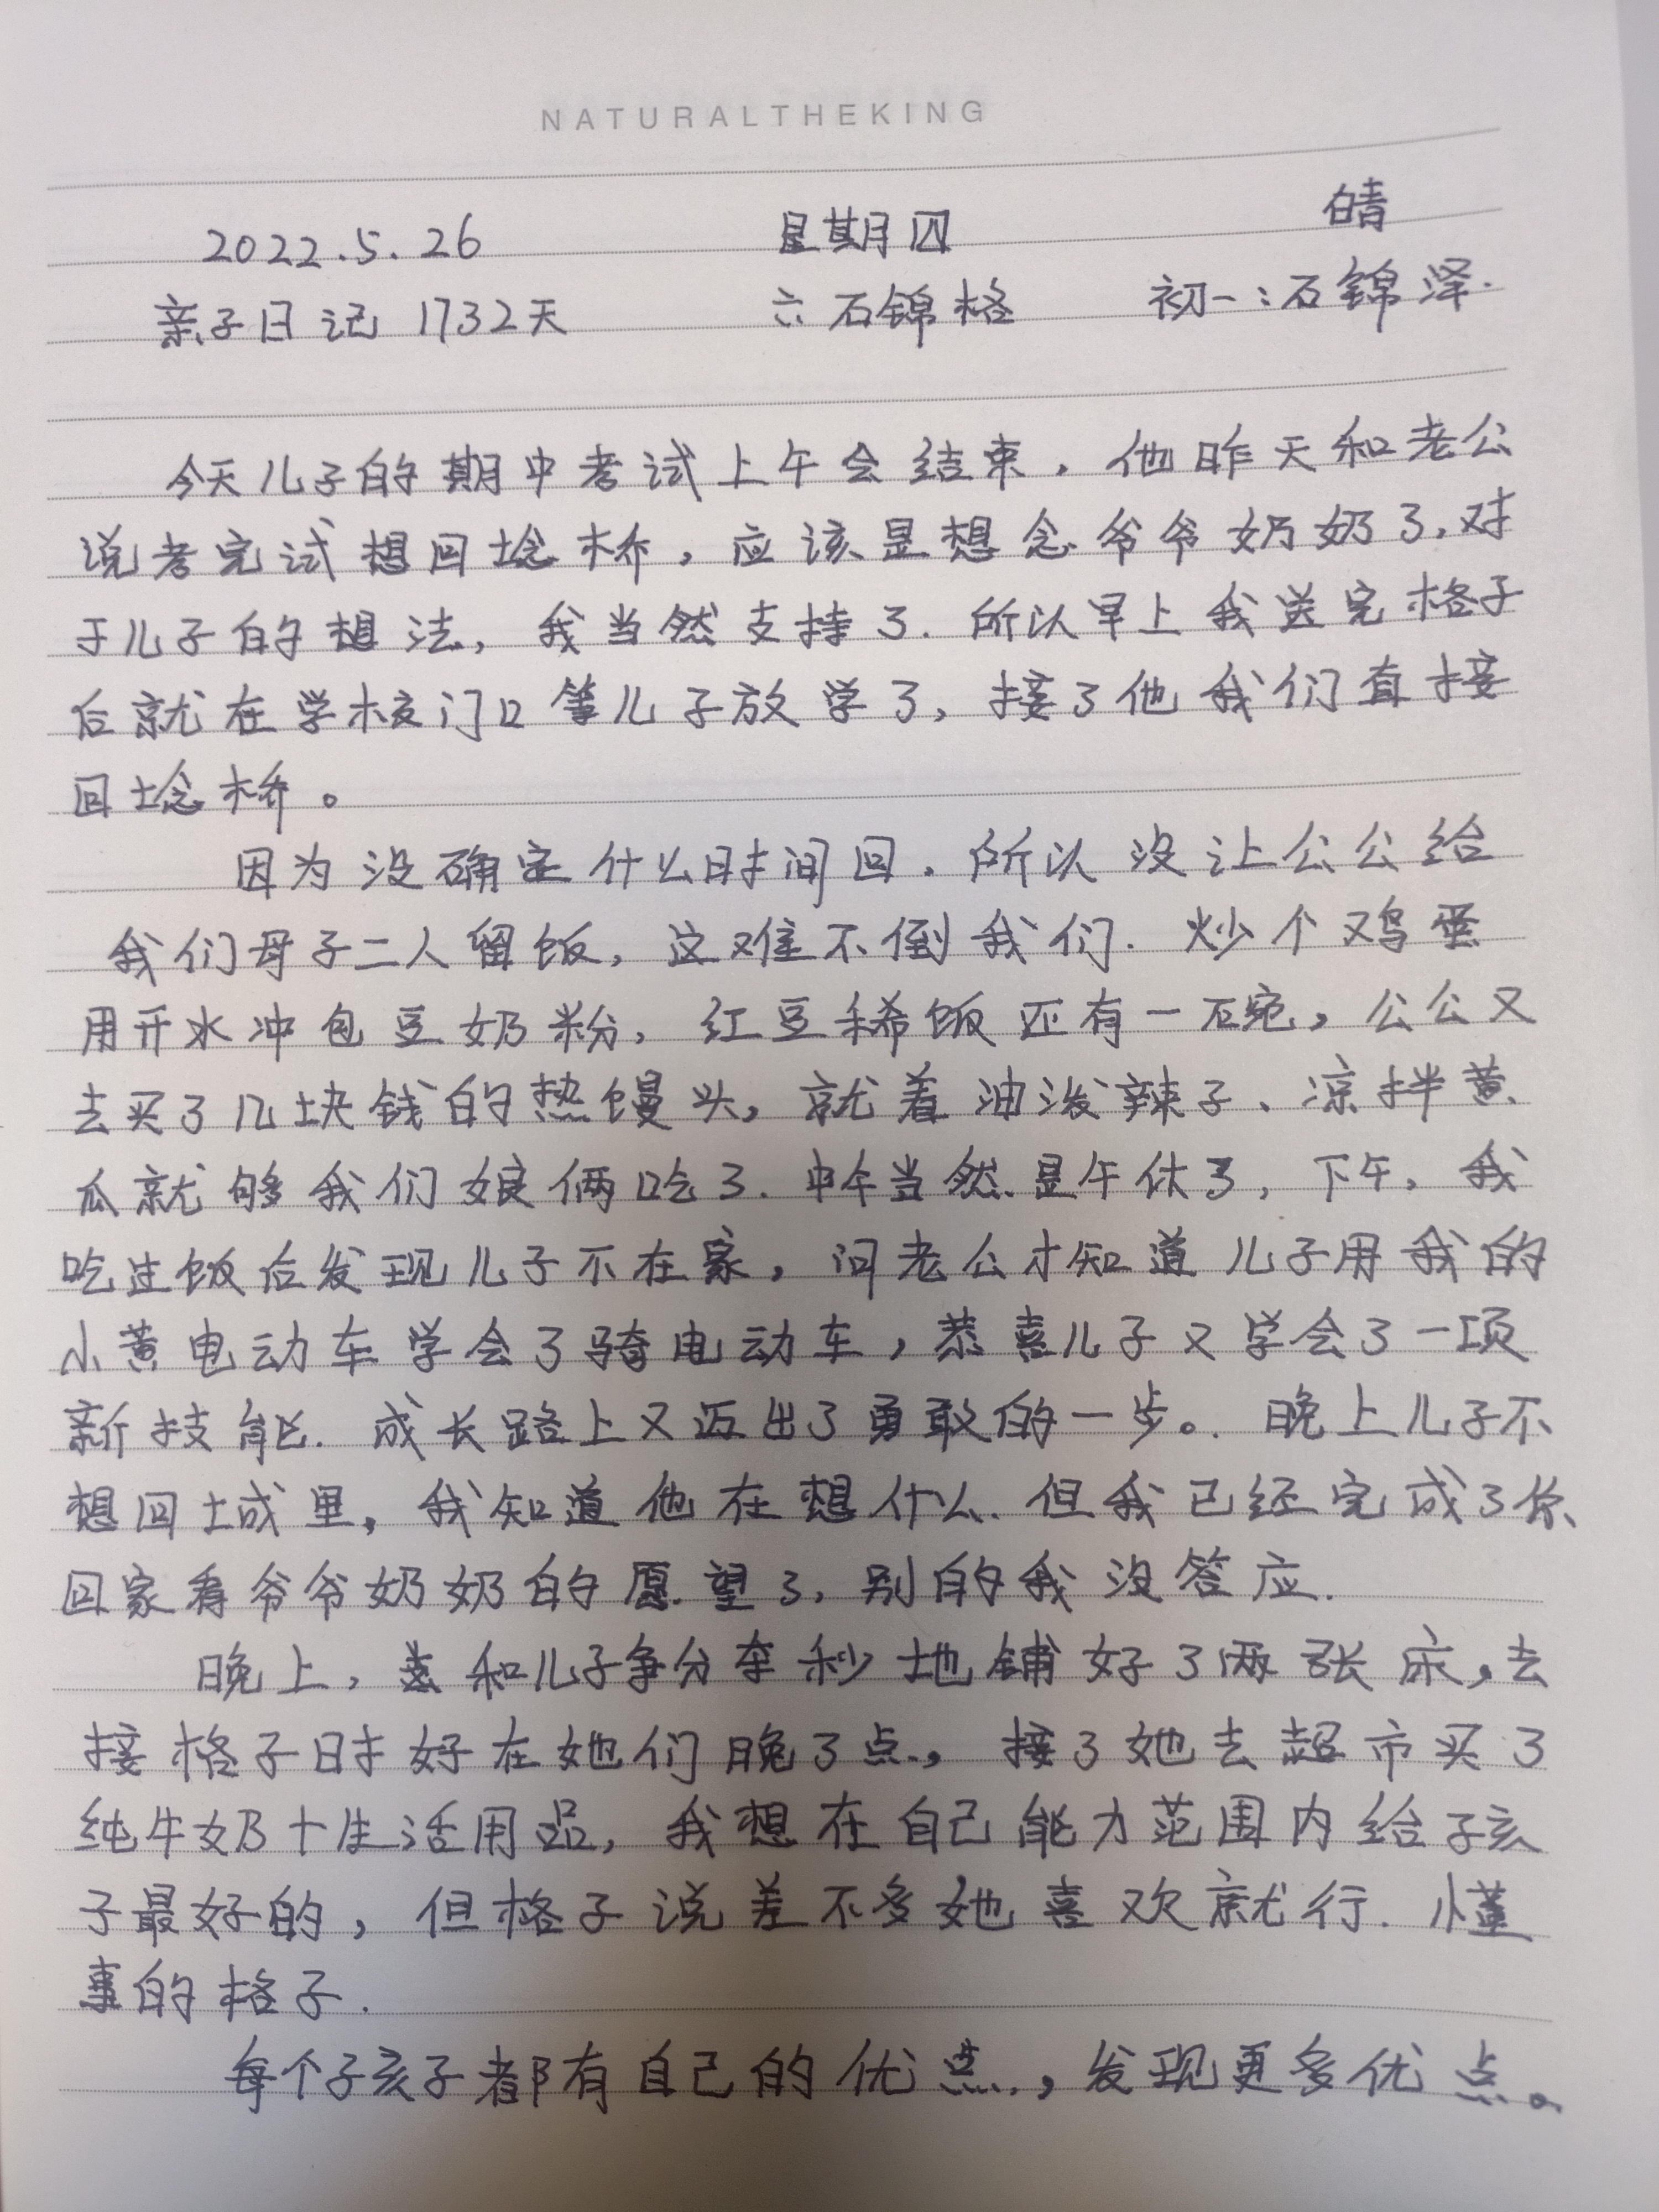 NATURALTHEKING
2022.5.26 星期四 晴
亲子日记 1732天 六:石锦格 初一:石锦泽.
今天儿子的期中考试上午会结束，他昨天和老公
说考完试想回埝桥，应该是想念爷爷奶奶了,对
于儿子的想法，我当然支持了.所以早上我送完格子
后就在学校门口等儿子放学了，接了他我们直接
回埝桥。
因为没确定什么时间回.所以没让公公给
我们母子二人留饭，这难不倒我们.炒个鸡蛋
用开水冲包豆奶粉，红豆稀饭还有一碗，公公又
去买了几块钱的热馒头，就着油泼辣子、凉拌黄
瓜就够我们娘俩吃了.中午当然是午休了，下午，我
吃过饭后发现儿子不在家，问老公才知道儿子用我的
小黄电动车学会了骑电动车，恭喜儿子又学会了一项
新技能.成长路上又迈出了勇敢的一步。.晚上儿子不
想回城里，我知道他在想什么.但我已经完成了你
回家看爷爷奶奶的愿望了，别的我没答应.
晚上，和儿子争分夺秒地铺好了两张床，去
接格子时好在她们晚了点，接了她去超市买了
纯牛奶十生活用品，我想在自己能力范围内给孩
子最好的，但格子说差不多她喜欢就行.懂
事的格子.
每个孩子都有自己的优点，发现更多优点。